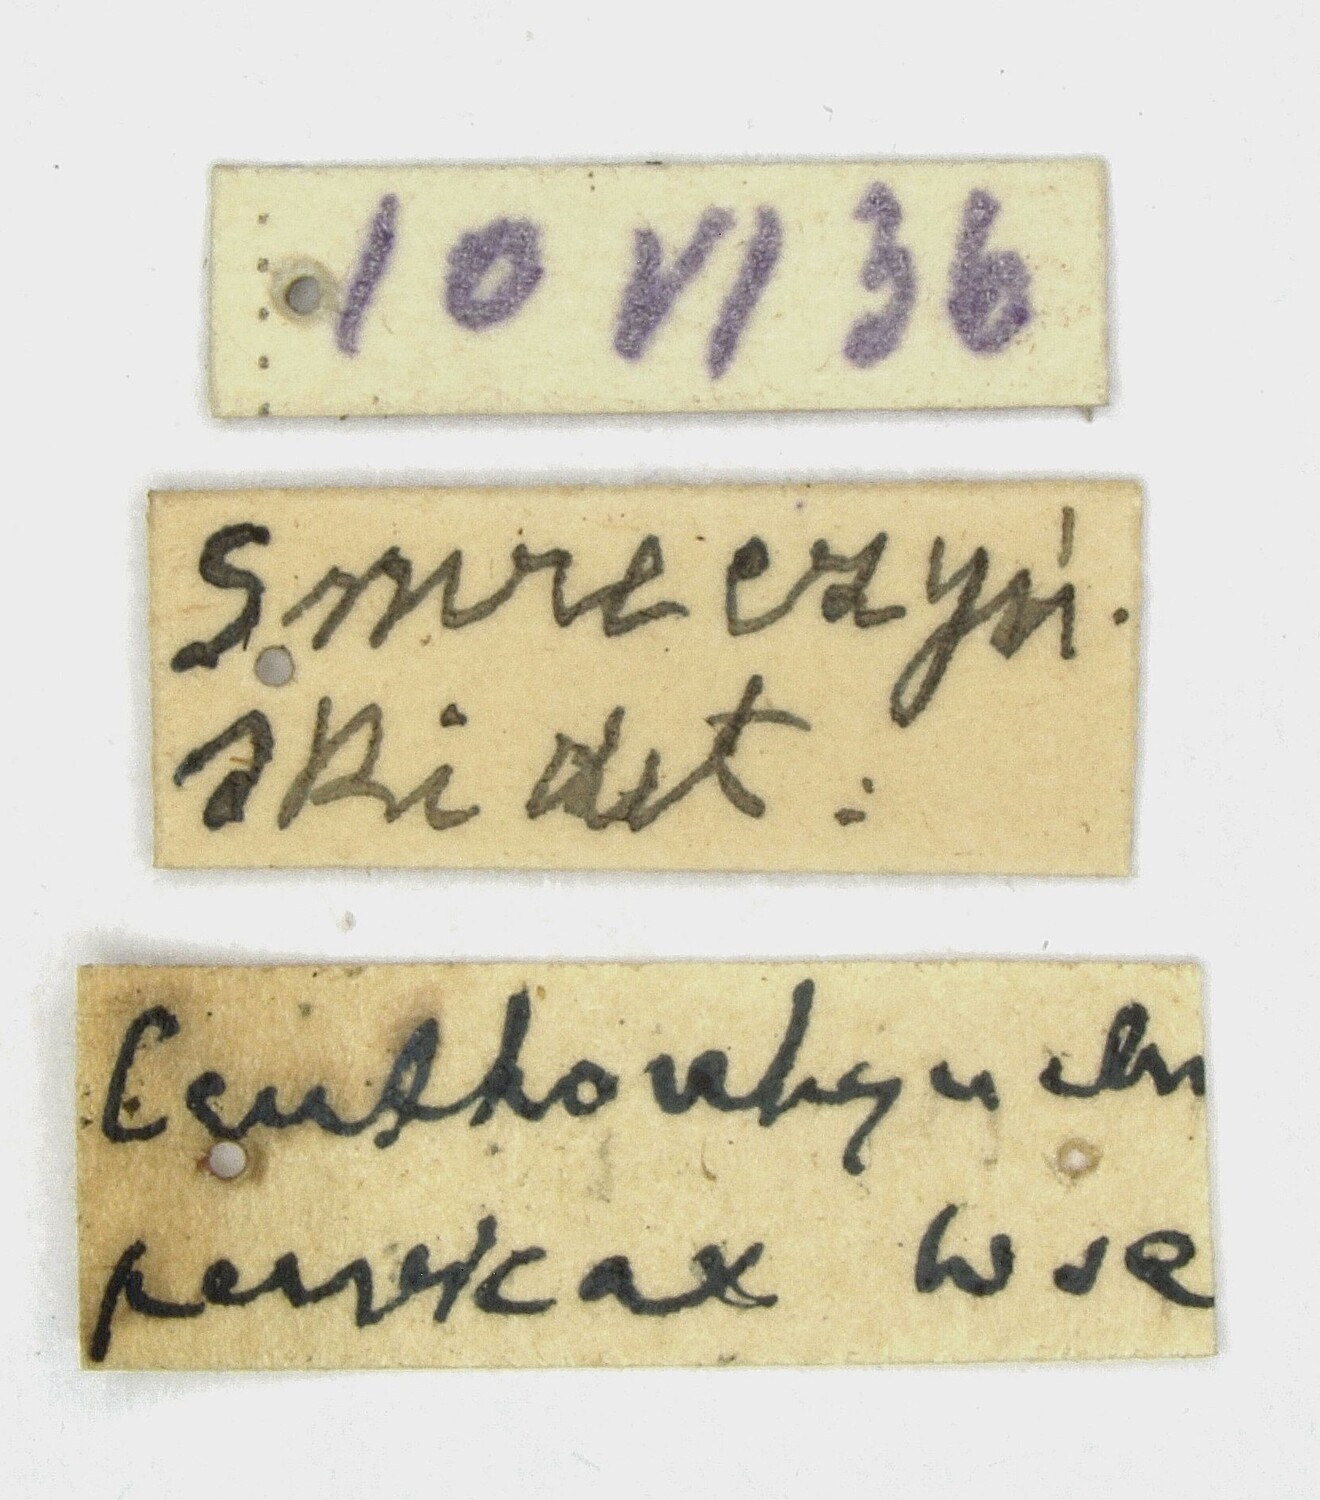 10 VI 36
Smreczyń.
ski det.
Ceuthorrhynchu
pervicax Wse